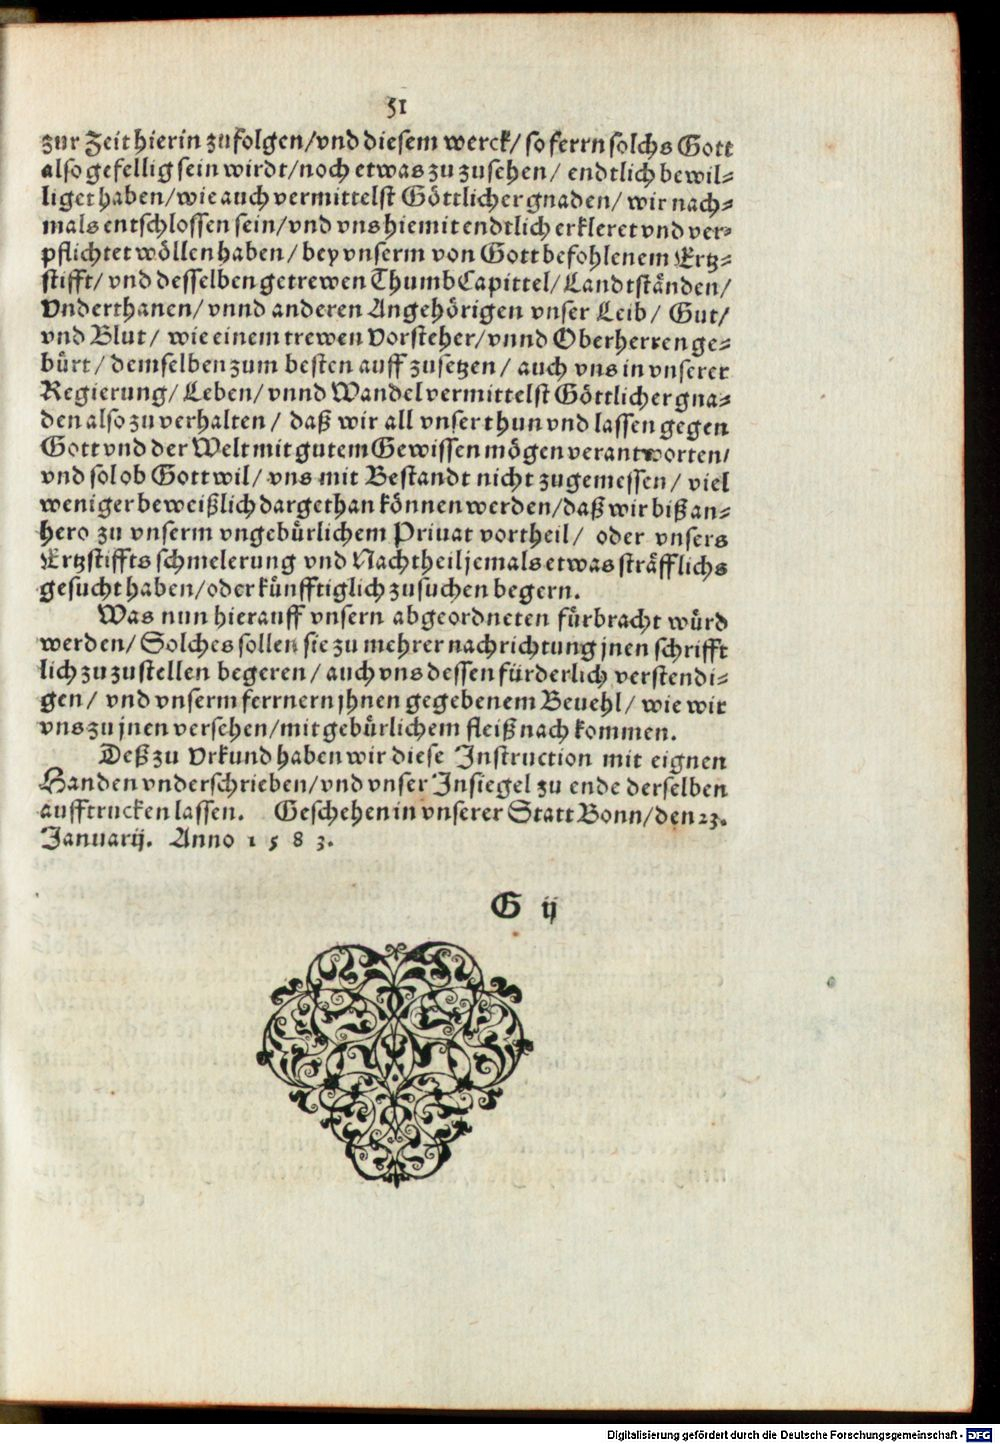 51
zur Zeit hierin zufolgen/vnd diesem werck/ so ferrn solchs Gott
also gefellig sein wirdt/noch etwas zu zusehen/ endtlich bewil-
liget haben/wie auch vermittelst Göttlicher gnaden/ wir nach-
mals entschlossen sein/vnd vns hiemit endtlich erkleret vnd ver-
pflichtet wöllen haben/ bey vnserm von Gott befohlenem Ertz-
stifft/ vnd desselben getrewen Thumb Capittel/ Landtständen/
Vnderthanen/ vnnd anderen Angehörigen vnser Leib/ Gut/
vnd Blut/ wie einem trewen Vorsteher/vnnd Oberherren ge-
bürt/ demselben zum besten auff zusetzen/ auch vns in vnserer
Regierung/ Leben/ vnnd Wandel vermittelst Göttlicher gna-
den also zu verhalten/ daß wir all vnser thun vnd lassen gegen
Gott vnd der Welt mit gutem Gewissen mögen verantworten/
vnd sol ob Gott wil/ vns mit Bestandt nicht zugemessen/ viel
weniger beweißlich dargethan können werden/daß wir biß an-
hero zu vnserm vngebürlichem Priuat vortheil/ oder vnsers
Ertzstiffts schmelerung vnd Nachtheil jemals etwas sträfflichs
gesucht haben/oder künfftiglich zusuchen begern.
Was nun hierauff vnsern abgeordneten fürbracht würd
werden/ Solches sollen sie zu mehrer nachrichtung jnen schrifft
lich zu zustellen begeren/ auch vns dessen fürderlich verstendi-
gen/ vnd vnserm ferrnern jhnen gegebenem Beuehl/ wie wir
vns zu jnen versehen/mit gebürlichem fleiß nach kommen.
Deß zu Vrkund haben wir diese Instruction mit eignen
Handen vnderschrieben/vnd vnser Insiegel zu ende derselben
aufftrucken lassen. Geschehen in vnserer Statt Bonn/den 23.
Januarij. Anno 1 5 8 3.
G ij
Digitalisierung gefördert durch die Deutsche Forschungsgemeinschaft - DFG